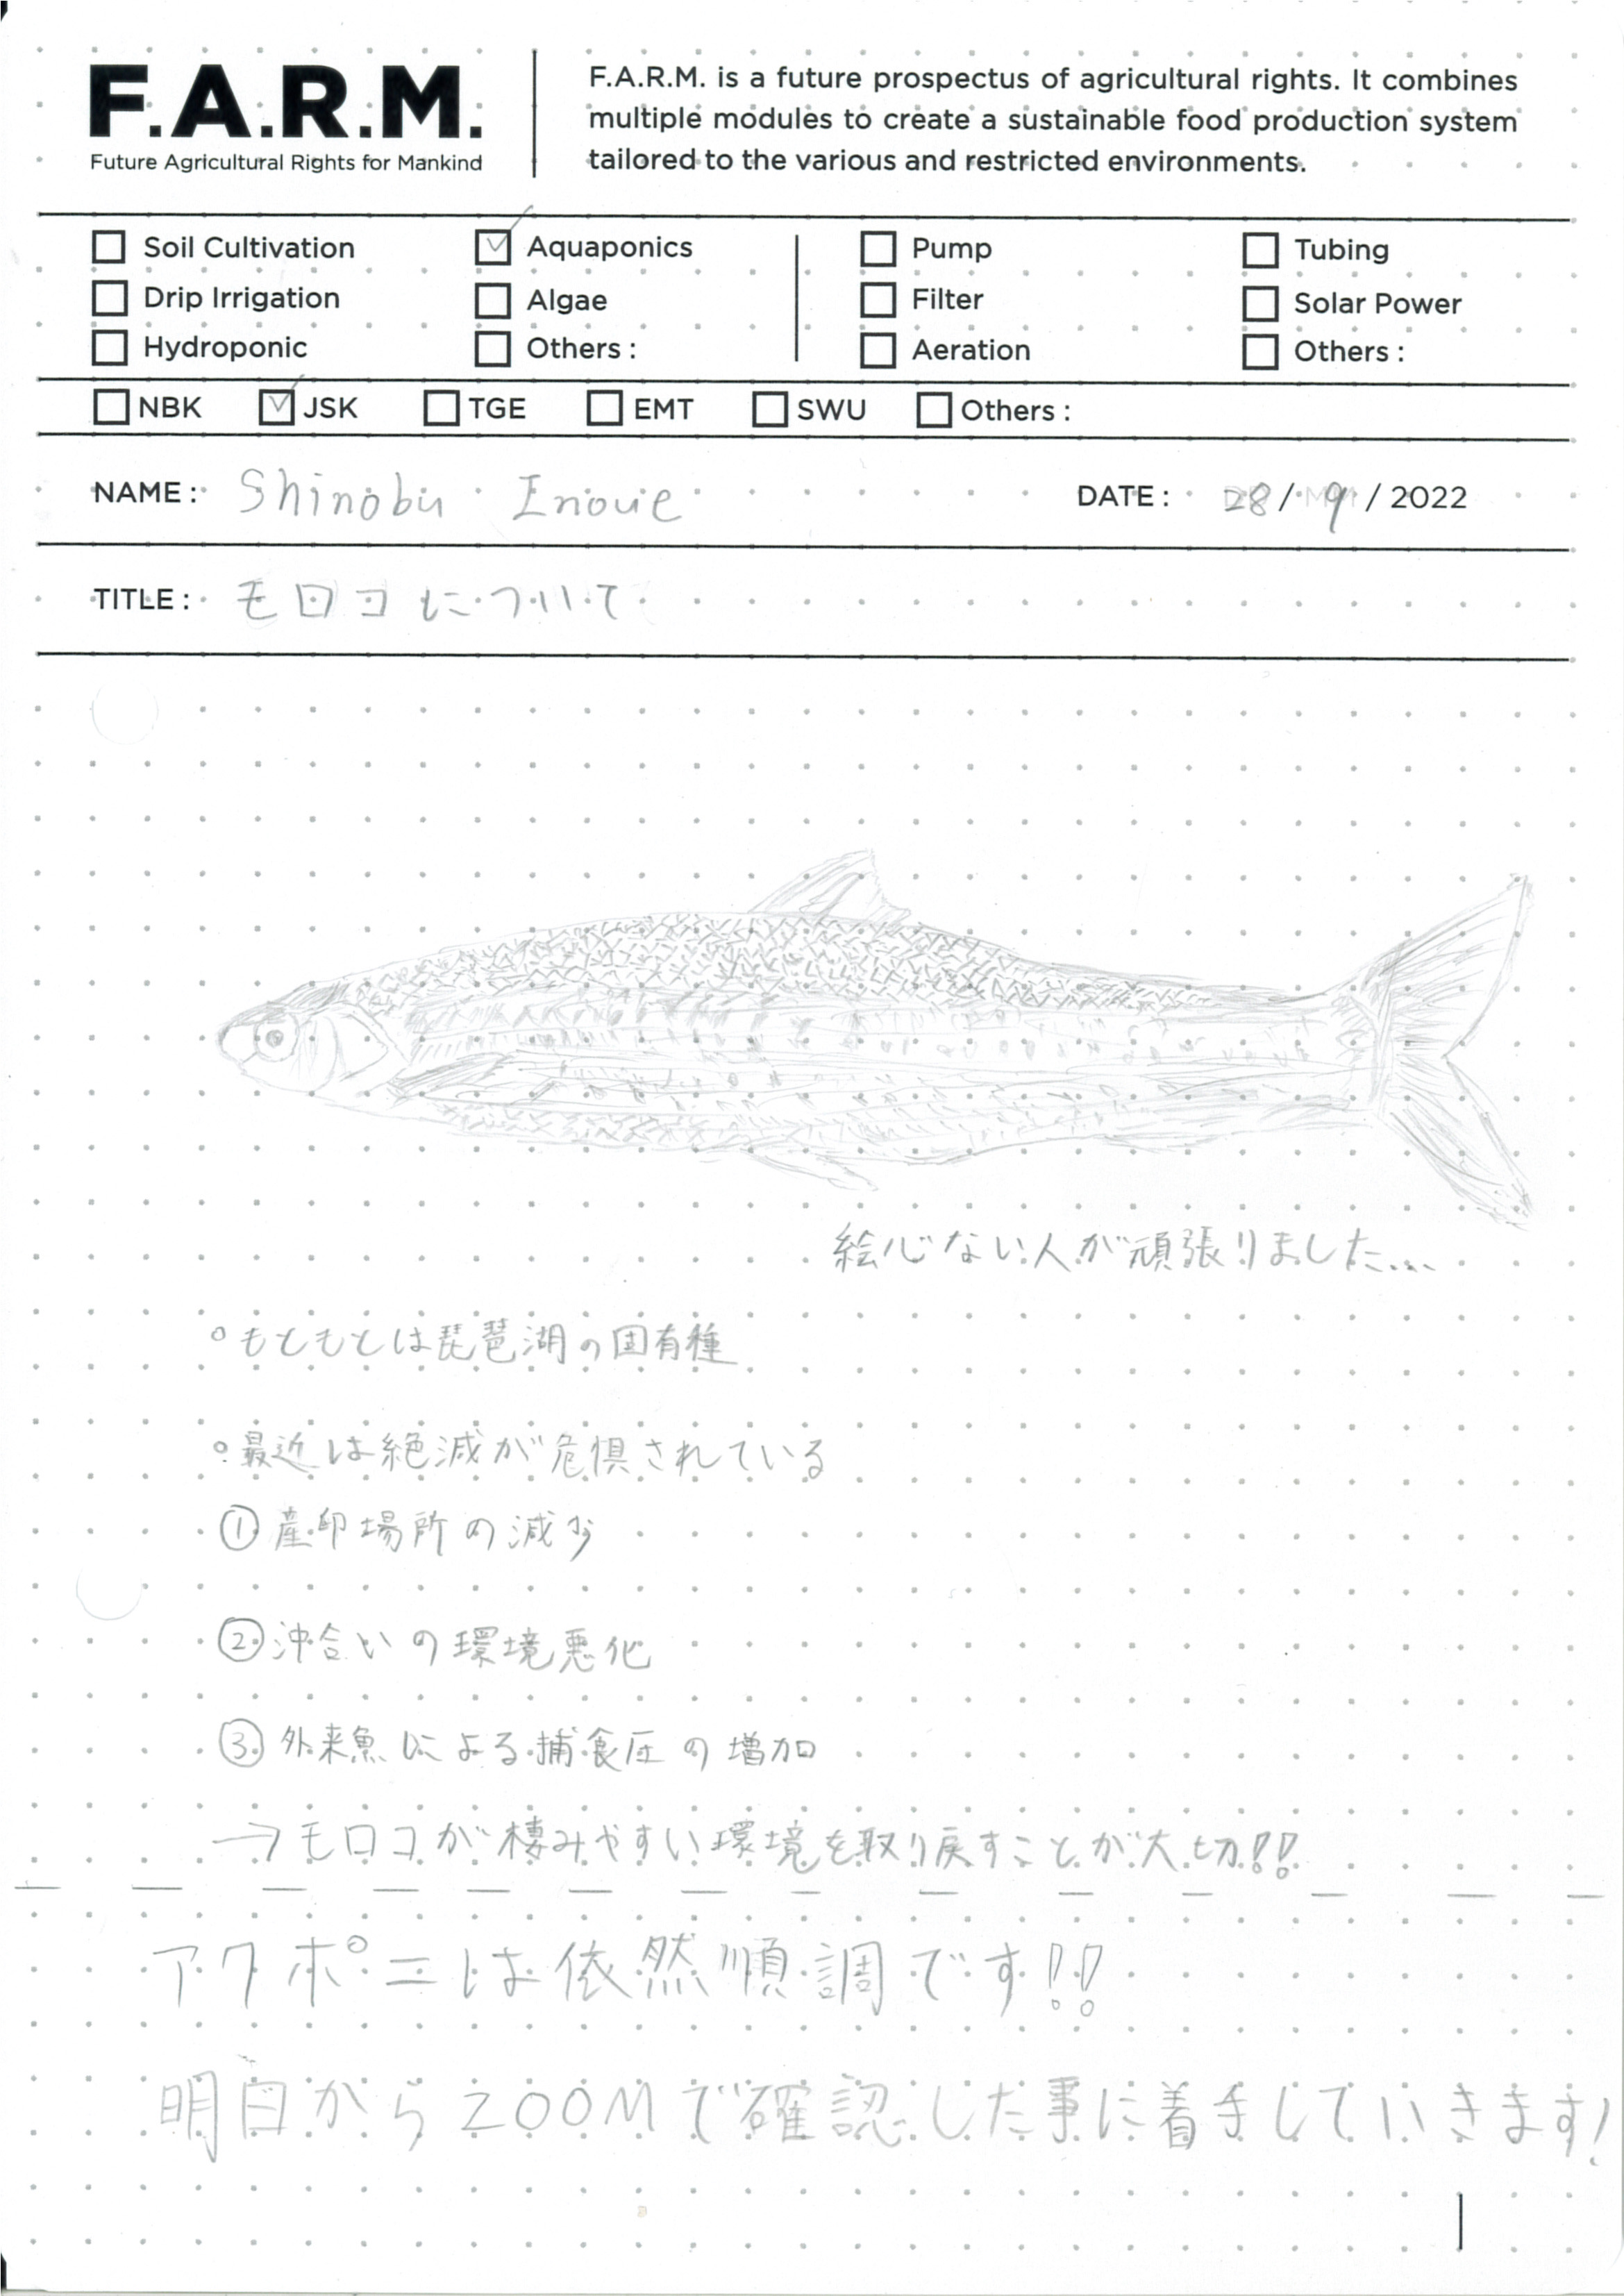 F.A.R.M.
Future Agricultural Rights for Mankind
F.A.R.M. is a future prospectus of agricultural rights. It combines
multiple modules to create a sustainable food production system
tailored to the various and restricted environments.
Soil Cultivation Aquaponics Pump Tubing
Drip Irrigation Algae Filter Solar Power
Hydroponic Others : Aeration Others :
NBK JSK TGE EMT SWU Others :
NAME : Shinobu Inoue DATE : 28 / 9 / 2022
TITLE : モロコについて
絵心ない人が頑張りました...
°もともとは琵琶湖の固有種
°最近は絶滅が危惧されている
①産卵場所の減少
②沖合いの環境悪化
③外来魚による捕食圧の増加
→モロコが棲みやすい環境を取り戻すことが大切!!
アクポニは依然順調です!!
明日からZOOMで確認した事に着手していきます!